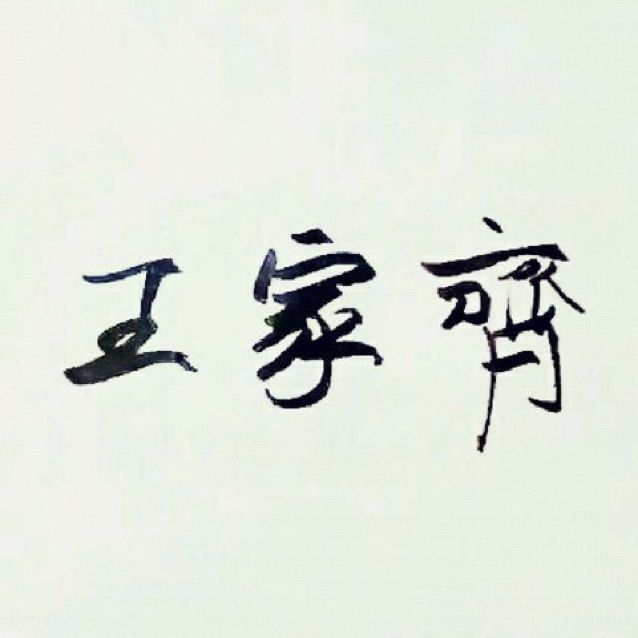 王家齊